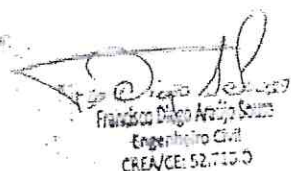 Francisco Diogo Araújo Souza
Engenheiro Civil
CREA/CE: 52.710.D